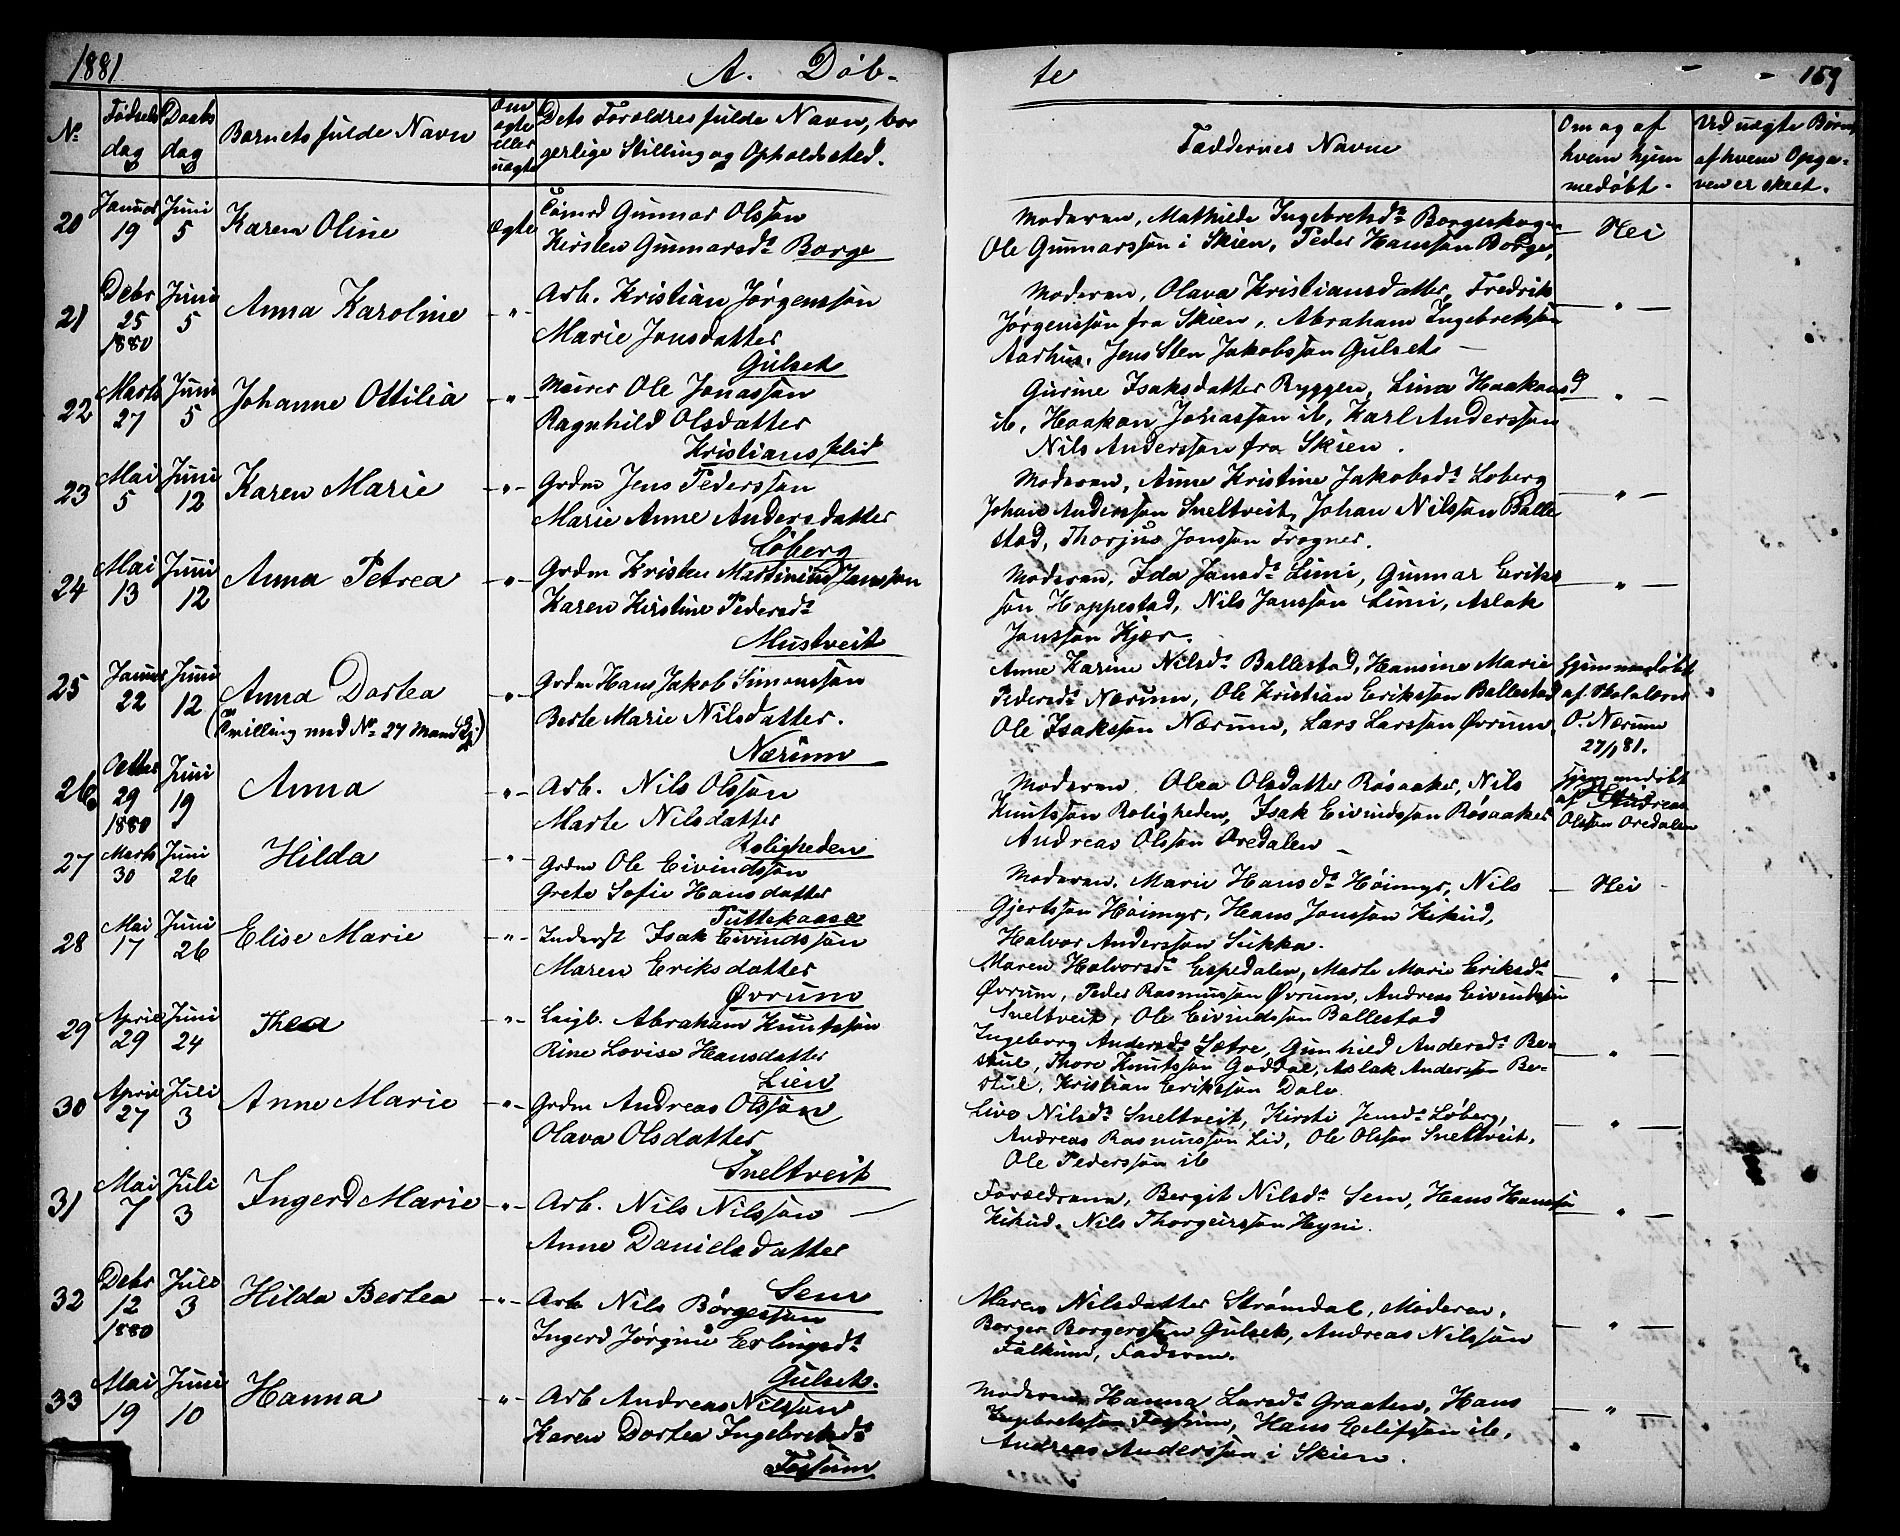 1881
A. Døb-
te
159
No
Fødsels
dag
Daabs
dag
Barnets fulde Navn
Om
ægte
eller
uægte
Dets Forældres fulde Navn, bor
gerlige Stilling og Opholdssted.
Faddernes Navne
Om og af
hvem hjem
medøbt.
Ved uægte Børn
af hvem Opga-
ven er skeet.
20
Januar
19
Juni
5
Karen Oline
Ægte
Tømrd Gunnar Olsson
Kirsten Gunnarsdr Borge
Moderen, Mathilde Ingebretsdr Borgeskogen
Ole Gunnarsson i Skien, Peder Hansson Borge,
Nei
21
Debr
25
1880
Juni
5
Anna Karoline
-"-
Arb. Kristian Jørgensson
Marie Jonsdatter
Gulset
Moderen, Olava Kristiansdatter, Fredrik
Jørgensson fra Skien, Abraham Ingebretsson
Aarhus, Jens Sten Jakobsson Gulset
"
22
Marts
27
Juni
5
Johanne Ottilia
-"-
Murer Ole Jonasson
Ragnhild Olsdatter
Kristianslid
Gurine Isaksdatter Ryggen, Lina Haakansd
ib, Haakon Johasson ib, Karl Andersson
Nils Andersson fra Skien.
"
23
Mai
5
Juni
12
Karen Marie
-"-
Grdm Jens Pedersson
Marie Anne Andersdatter
Løberg
Moderen, Anne Kristine Jakobsdr Loberg
Johans Andersson Sneltveit, Johan Nilsson Balle
stad, Thorjus Jonsson Frogner.
"
24
Mai
13
Juni
12
Anna Petrea
-"-
Grdm Kristen Martinius Jansson
Karen Kirstine Pedersdr
Mustveit
Moderen, Ida Jansdr Limi, Gunnar Eriks
son Hoppestad, Nils Jansson Limi, Aslak
Jonsson Kjær.
"
25
Januar
22
Juni
12
Anna Dortea
(Tvilling med No 27 Mandkj)
"
Grdm Hans Jakob Simonsson
Berte Marie Nilsdatter.
Nærum
Anne Karine Nilsdr Ballestad, Hansine Marie
Pedersdr Nærum, Ole Kristian Eriksson Ballestad
Ole Isaksson Nærum, Lars Larsson Øvrum
Hjemmedøbt
af Skolelærer
O. Nærum
27/1 81.
26
Octbr
29
1880
Juni
19
Anna
-"-
Arb. Nils Olsson
Marte Nilsdatter
Roligheden
Moderen. Olea Olsdatter Røsaaker, Nils
Knutsson Roligheden, Isak Eivindsson Røsaaker
Andreas Olsson Oredalen
Hjemmedøbt
af Andreas
Olsson Oredalen
27
Marts
30
Juni
26
Hilda
-"-
Grdm Ole Eivindsson
Grete Sofie Hansdatter
Puttekaasa
Moderen. Marie Hansdr Høimyr, Nils
Gjertsson Høimyr, Hans Jonsson Kikud,
Halvor Andersson Sukka.
Nei
28
Mai
17
Juni
26
Elise Marie
-"-
Inderst Isak Eivindsson
Maren Eriksdatter
Øvrum
Maren Halvorsdr Espedalen, Marte Marie Eriksdr
Øvrum, Peder Rasmusson Øvrum, Andreas Eivindsson
Sneltveit, Ole Eivindsson Ballestad
"
29
April
29
Juni
24
Thea
-"-
Leigl. Abraham Knutsson
Rine Lovise Hansdatter
Lien
Ingeborg Andersdr Sætre, Gunhild Andersdr Be-
stul, Thore Knutsson Goddal, Aslak Andersson Be-
stul, Kristian Eriksson Dale
"
30
April
27
Juli
3
Anne Marie
-"-
Grdm Andreas Olsson
Olava Olsdatter
Sneltveit
Live Nilsdr Sneltveit, Kirsti Jensdr Løberg,
Andreas Rasmusson Lid, Ole Olsson Sneltveit,
Ole Pedersson ib
"
31
Mai
7
Juli
3
Ingerd Marie
-"-
Arb. Nils Nilsson
Anne Danielsdatter
Sem
Forældrene, Bergit Nilsdr Sem, Hans Hansson
Kikud, Nils Thorgeirsson Hyni.
"
32
Debr
12
1880
Juli
3
Hilda Bertea
"
Arb Nils Børgesson
Ingerd Jørgine Erlingsdr
Gulset.
Maren Nilsdatter Strømdal, Moderen,
Borger Borgersson Gulset, Andreas Nilsson
Falkum, Faderen.
"
33
Mai
19
Juni
10
Hanna
"
Arb Andreas Nilsson
Karen Dortea Ingebretsdr
Fossum
Moderen Hanna Larsdr Graaten, Hans
Ingebretsson Fossum, Hans Eilifsson ib,
Andreas Andersson i Skien.
"